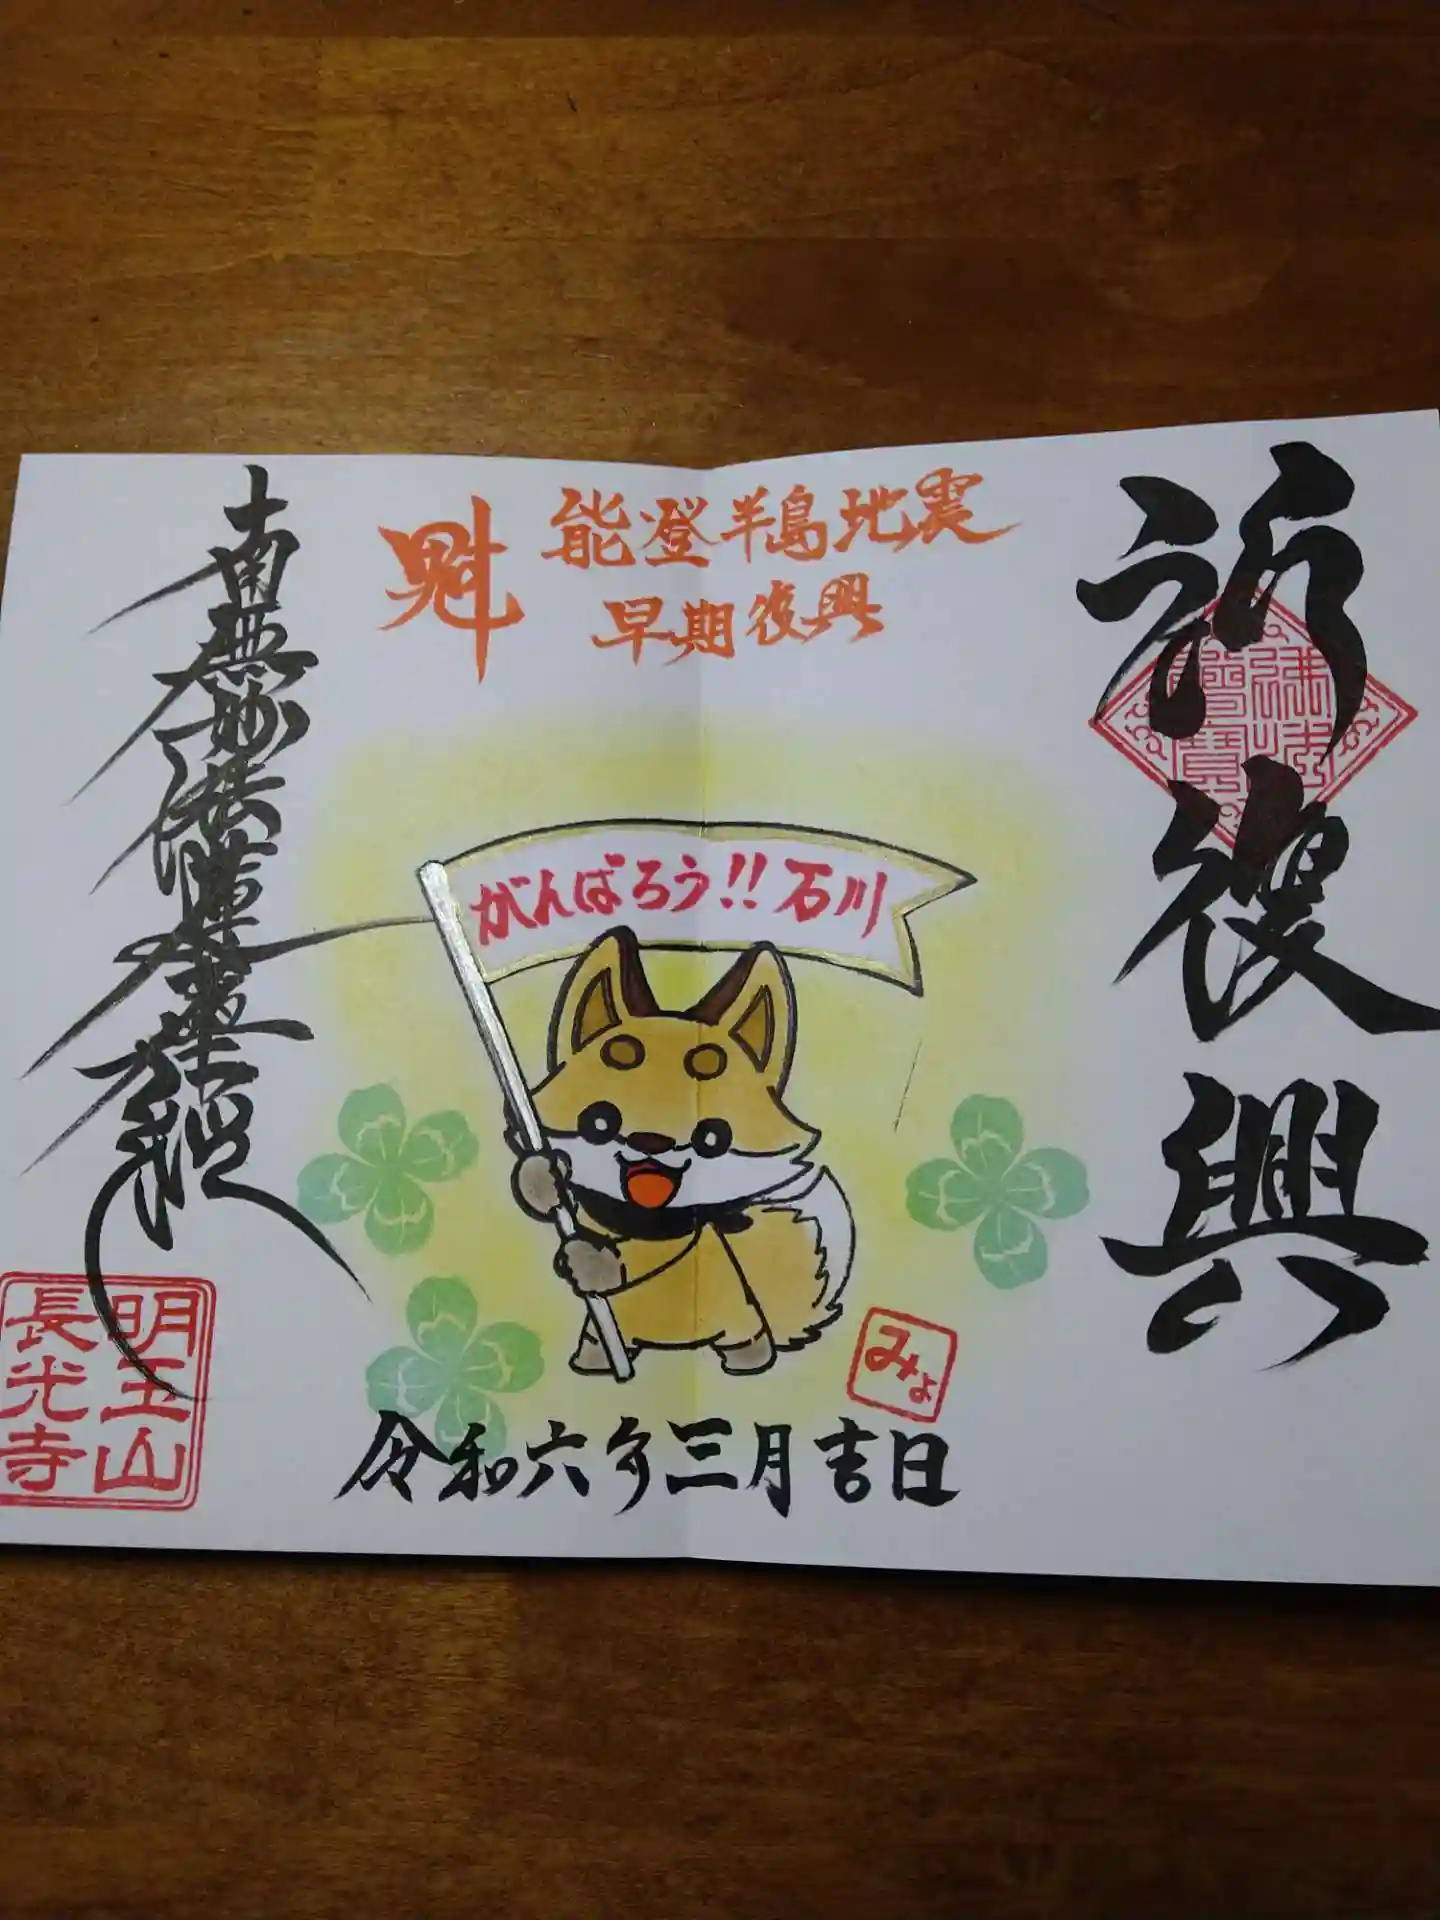 祈復興
能登半島地震
早期復興
魁
がんばろう!!石川
みよ
令和六年三月吉日
南無妙法蓮華経
明玉山
長光寺